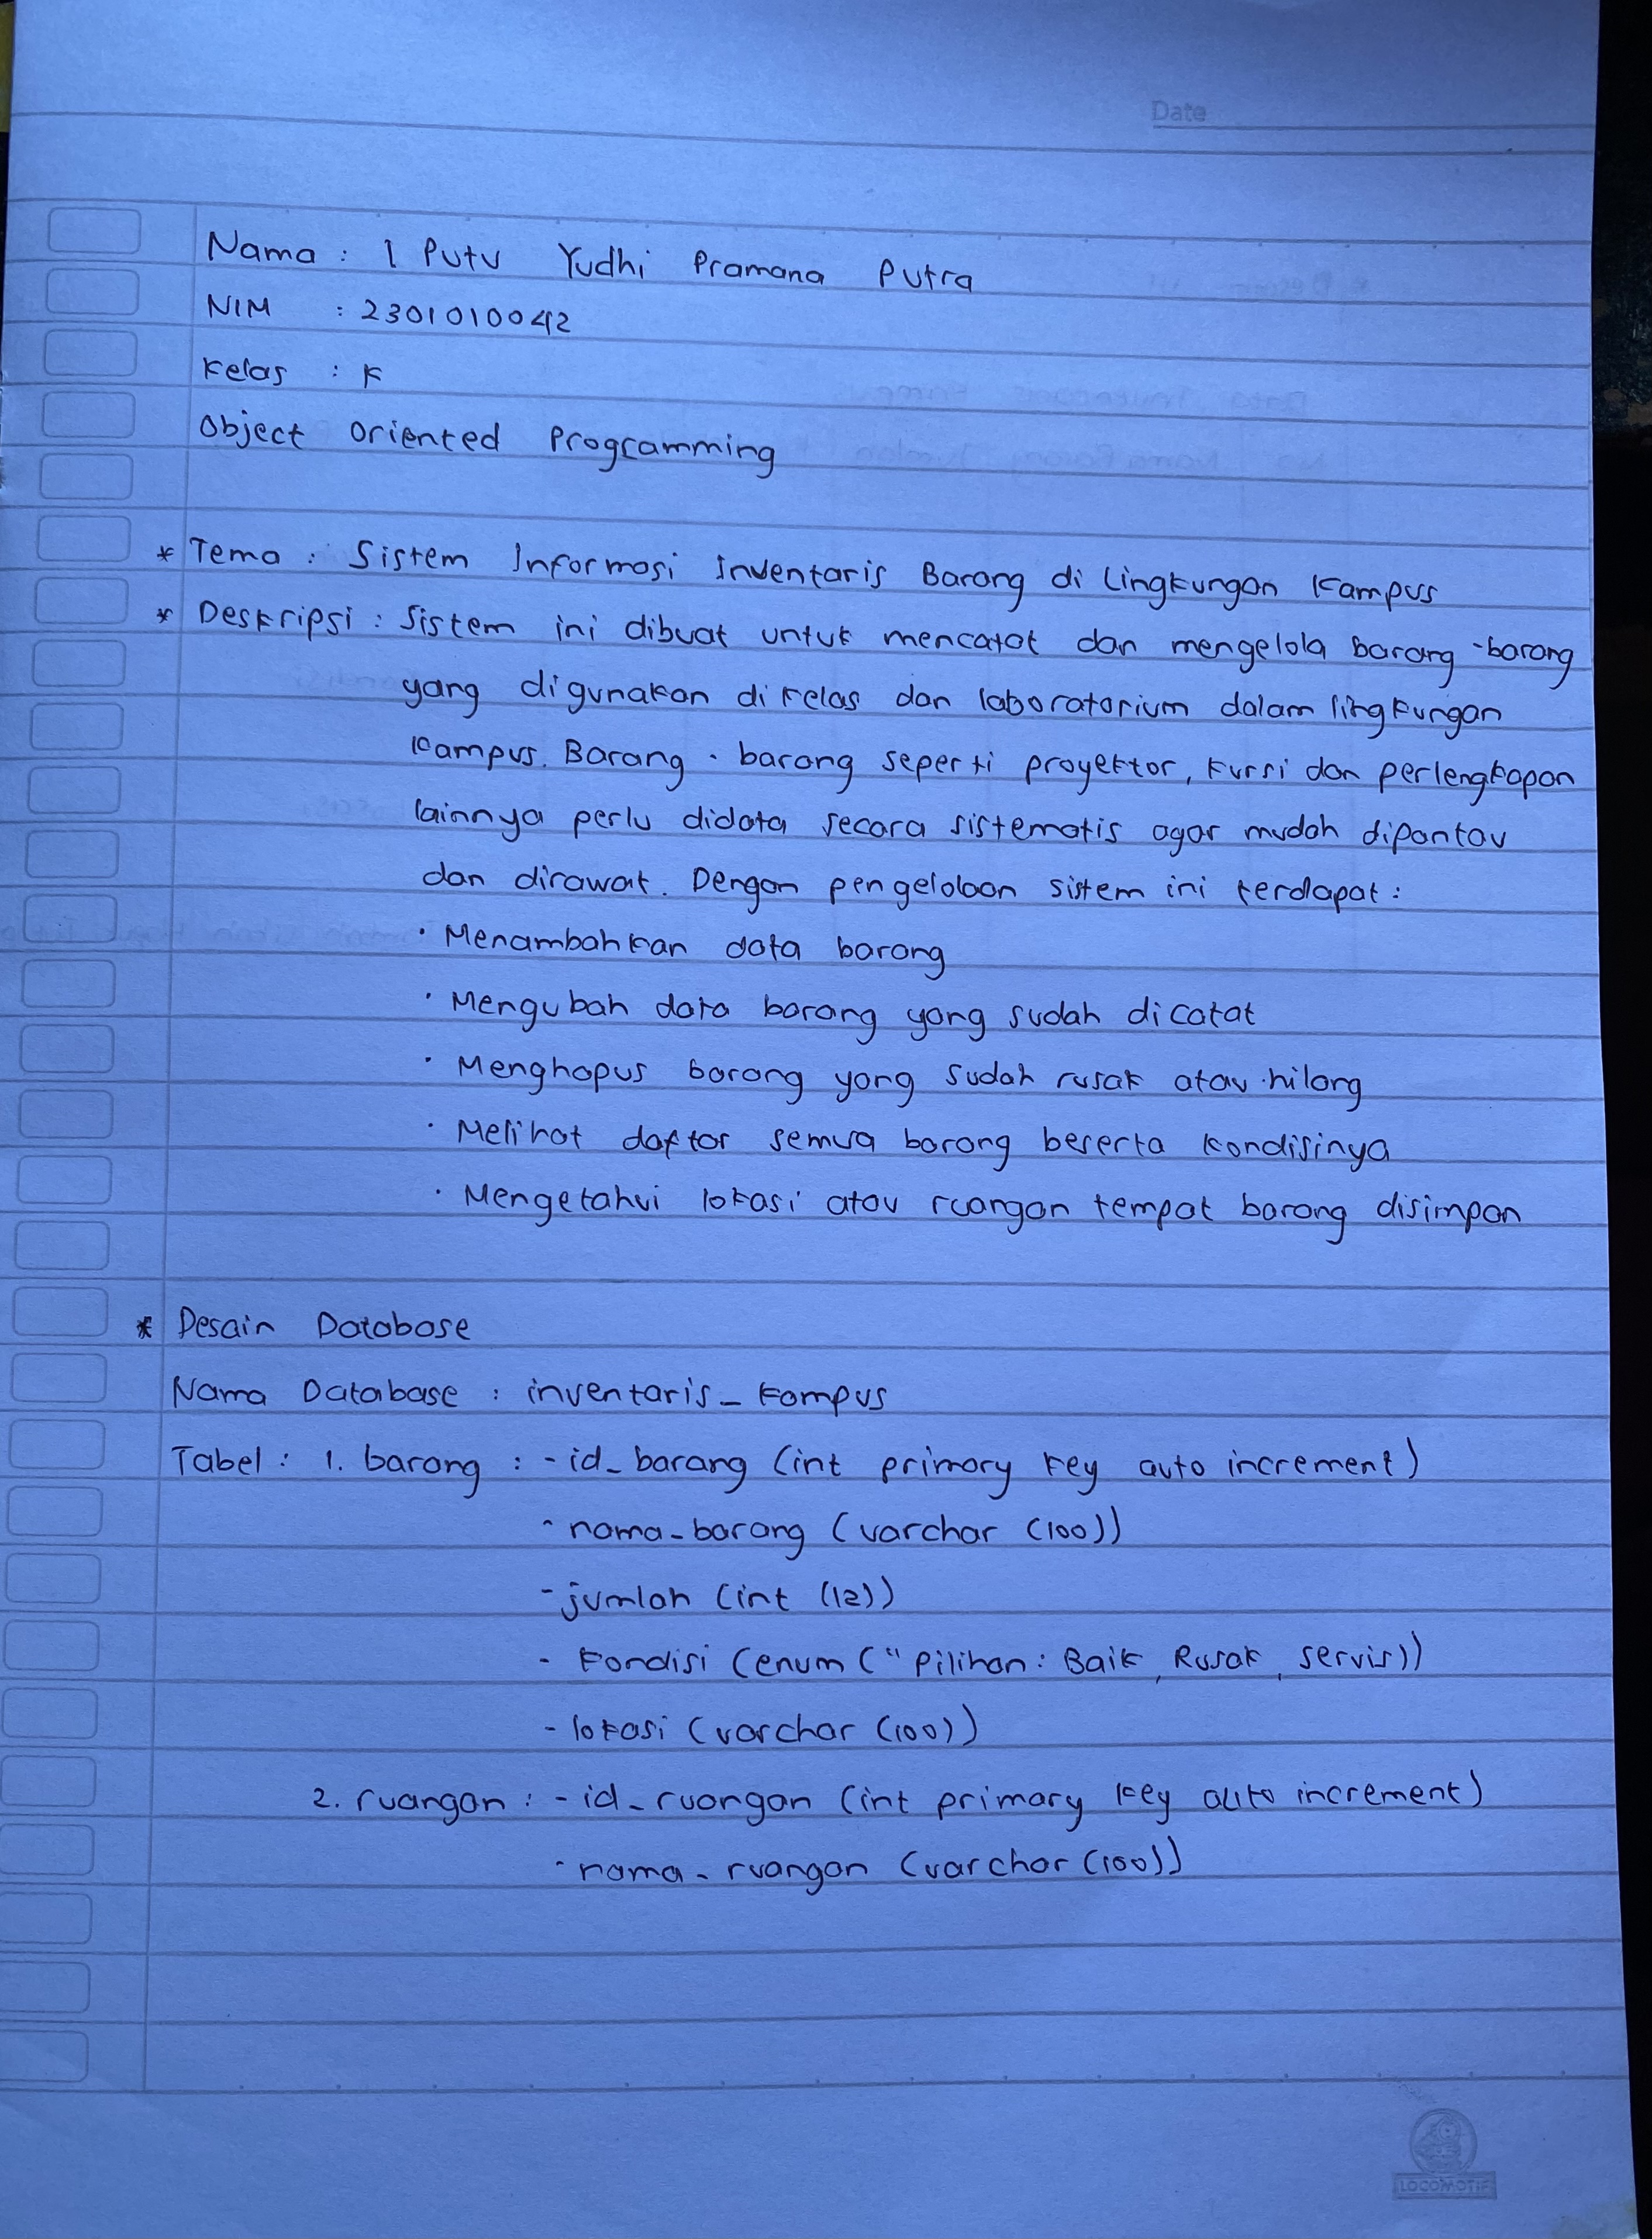 Date
Nama : I Putu Yudhi Pramana Putra
NIM : 2301010042
Kelas : K
Object Oriented Programming
* Tema : Sistem Informasi Inventaris Barang di Lingkungan Kampus
* Deskripsi : Sistem ini dibuat untuk mencatat dan mengelola barang-barang
yang digunakan di kelas dan laboratorium dalam lingkungan
kampus. Barang-barang seperti proyektor, kursi dan perlengkapan
lainnya perlu didata secara sistematis agar mudah dipantau
dan dirawat. Dengan pengelolaan sistem ini terdapat :
· Menambahkan data barang
· Mengubah data barang yang sudah dicatat
· Menghapus barang yang sudah rusak atau hilang
· Melihat daftar semua barang beserta kondisinya
· Mengetahui lokasi atau ruangan tempat barang disimpan
* Desain Database
Nama Database : inventaris_kampus
Tabel : 1. barang : - id_barang (int primary key auto increment)
- nama_barang (varchar (100))
- jumlah (int (12))
- kondisi (enum (" Pilihan : Baik, Rusak, servis))
- lokasi (varchar (100))
2. ruangan : - id_ruangan (int primary key auto increment)
- nama_ruangan (varchar (100))
LOCOMOTIF